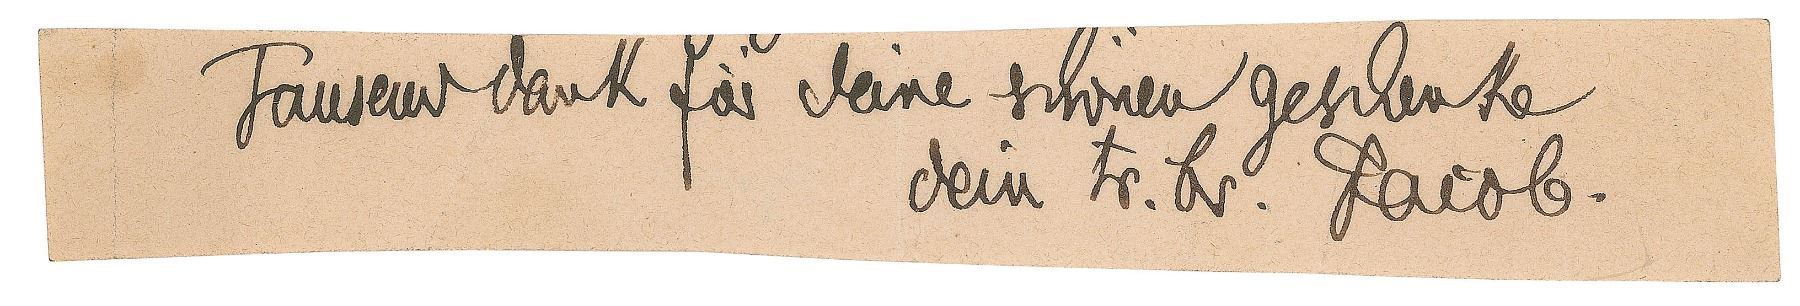 Tausend dank für deine schönen geschenke
dein tr. br. Jacob.